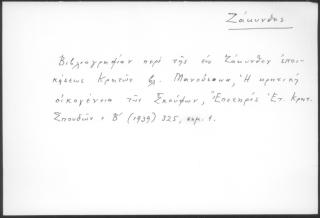 Ζάκυνθος
Βιβλιογραφίαν περὶ τῆς ἐν Ζάκυνθον ἐποι-
κήσεως Κρητῶν βλ. Μανούσακα, Ἡ κρητικὴ
οἰκογένεια τῶν Σκούφων, Ἐπετηρὶς Ἑτ. Κρητ.
Σπουδῶν Β΄ (1939) 325, σημ. 1.